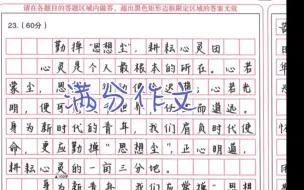 请在各题目的答题区域内做答，超出黑色矩形边框限定区域的答案无效
23.（60分）
勤掸“思想尘”，耕耘心灵田
心灵是个人最根本的所在。心若
蒙尘，思想
心若光
明，便可
而道远。
身为新时代的青年，我们肩负时代使
命，更应勤掸“思想尘”，正心明道，
耕耘心灵的一亩三分地。
身为新青年，我们应常掸“思想
满分作文